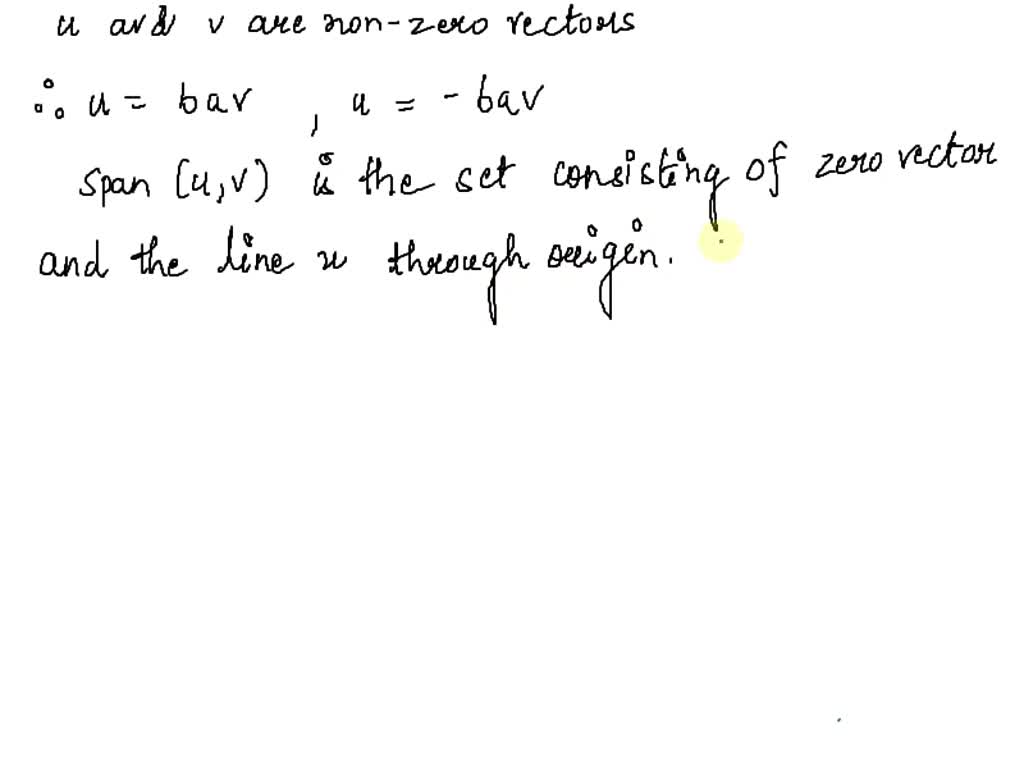 u and v are non-zero vectors
∴ u = bav , u = - bav
span (u,v) is the set consisting of zero vector
and the line u through origin.